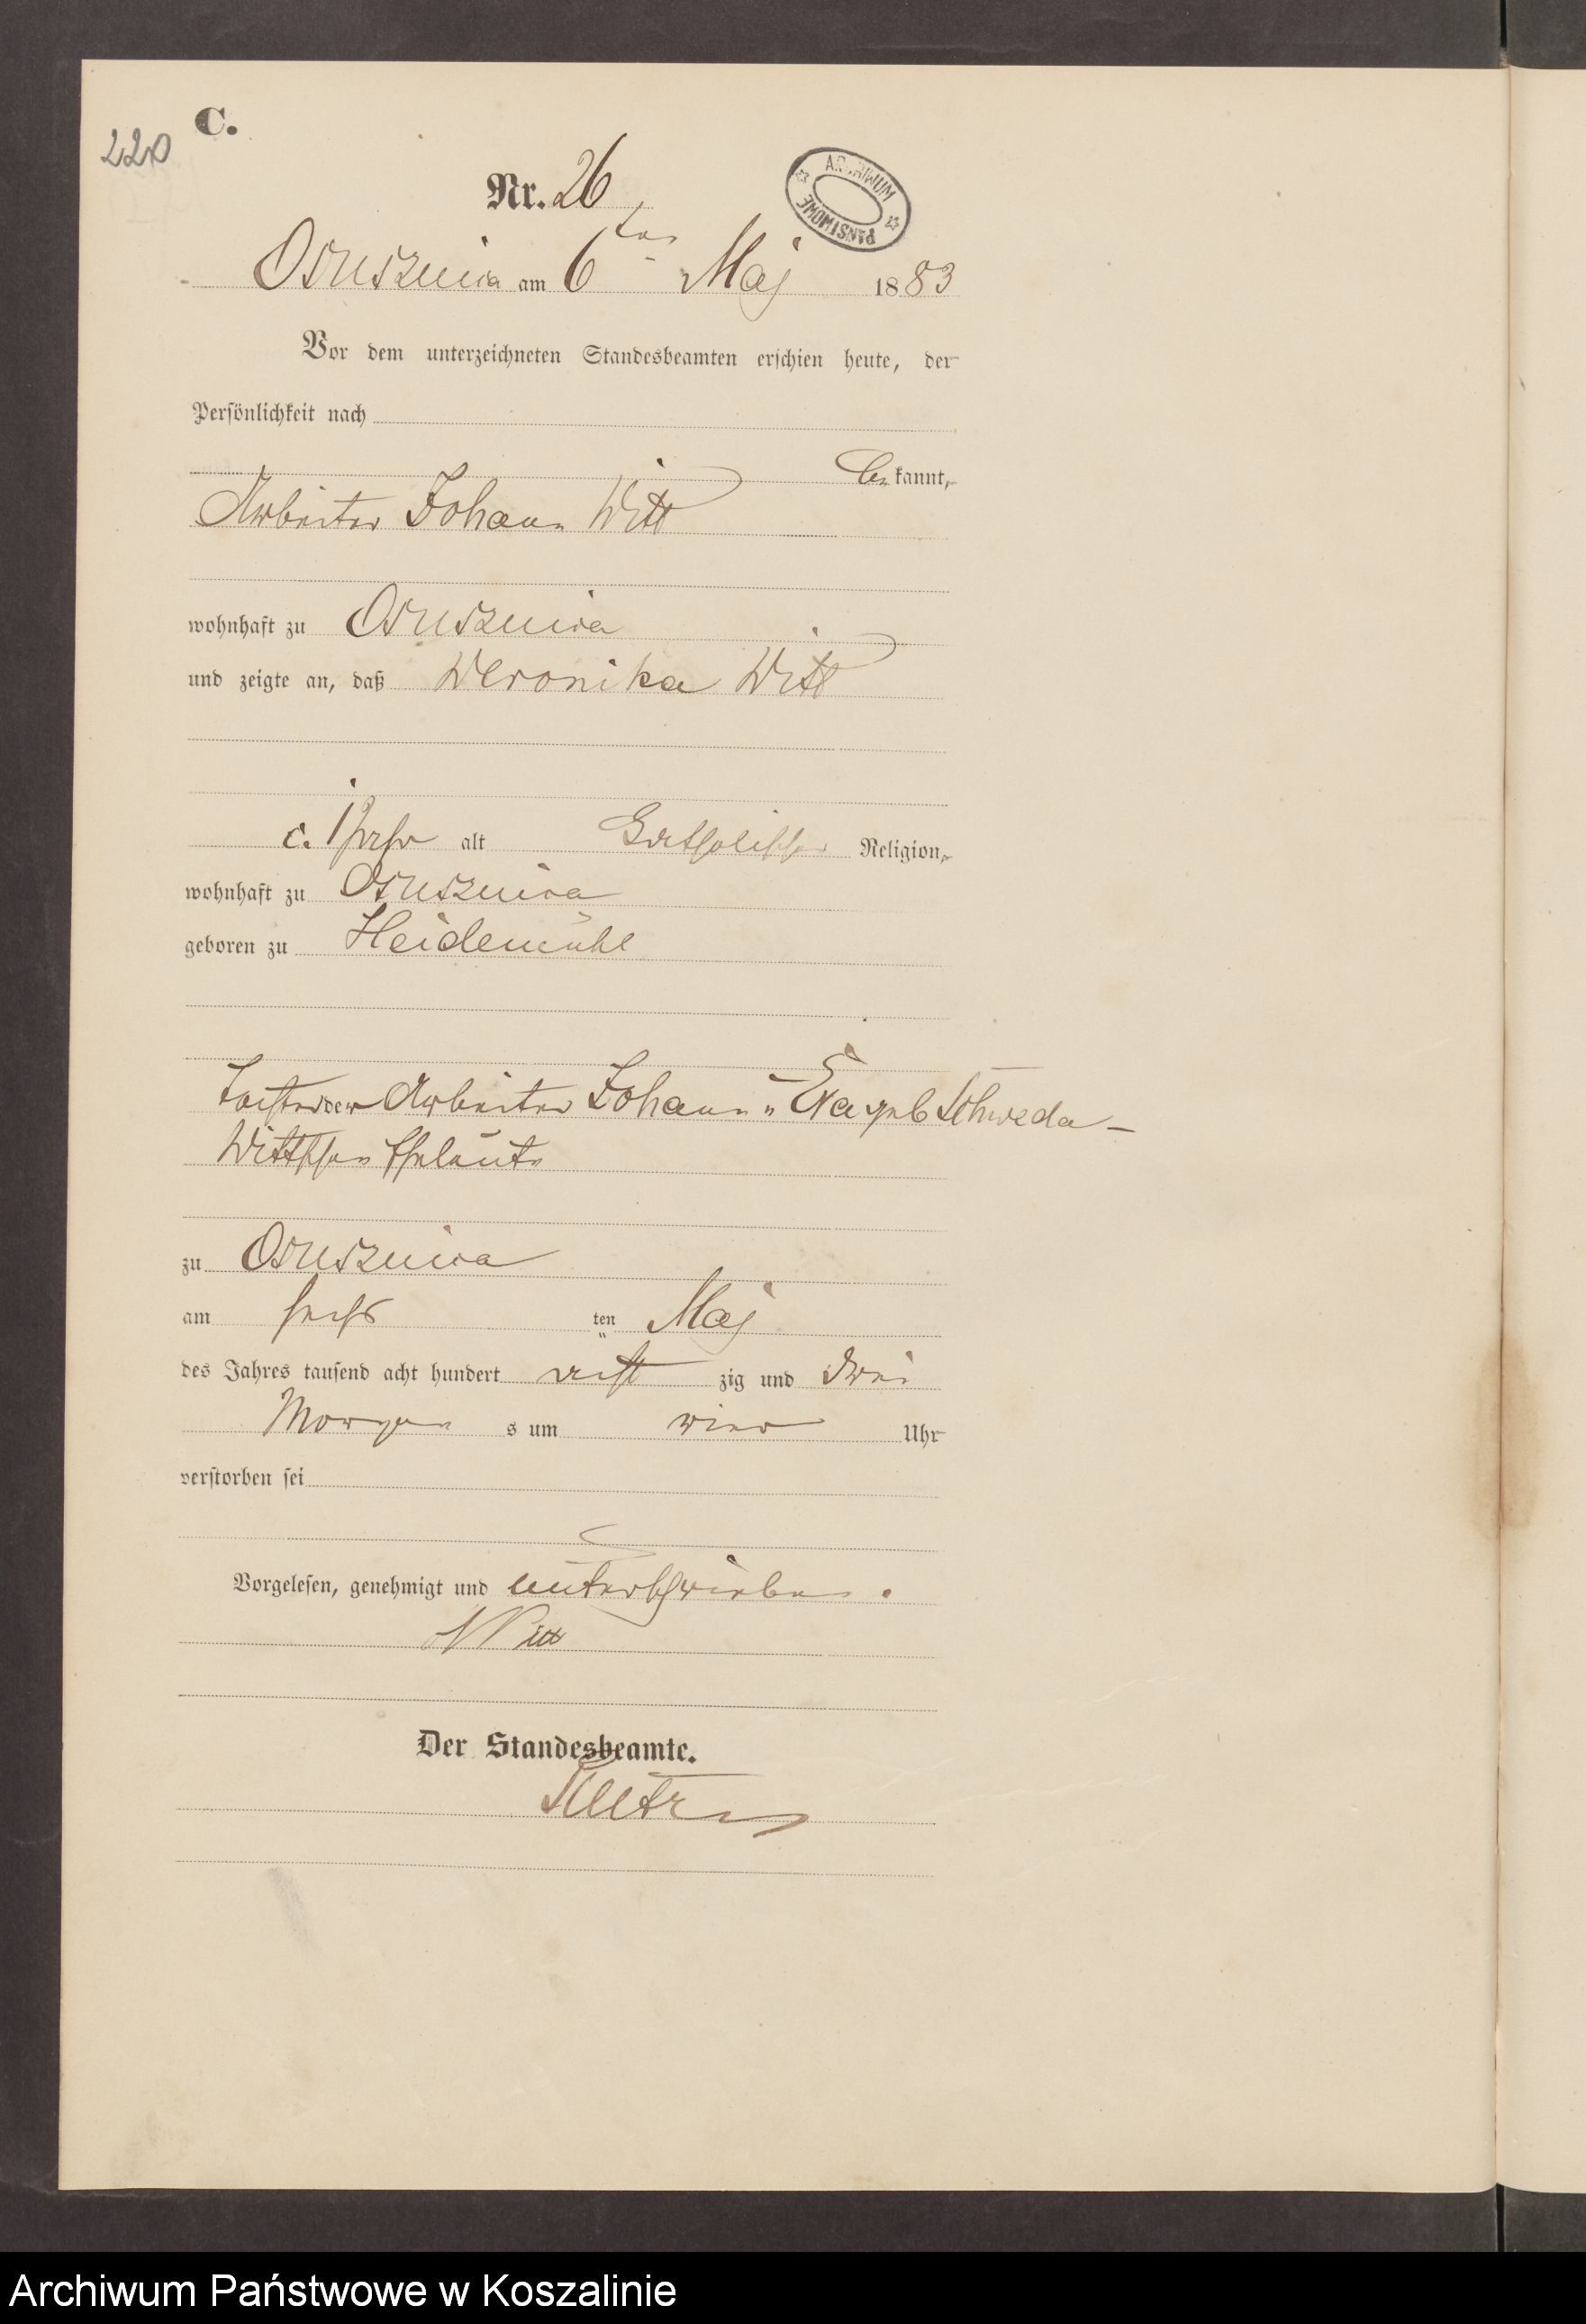 C.
220
Nr. 26
ARCHIWUM PAŃSTWOWE
Osusznica am 6ten Maj 1883
Vor dem unterzeichneten Standesbeamten erschien heute, der
Persönlichkeit nach
bekannt,
Arbeiter Johann Witt
wohnhaft zu Osusznica
und zeigte an, daß Weronika Witt
c. 1 Jahr alt Katholischer Religion,
wohnhaft zu Osusznica
geboren zu Heidemühl
Tochter der Arbeiter Johann u Eva geb Schweda
Wittschen Eheleute
zu Osusznica
am sechs ten Maj
des Jahres tausend acht hundert acht zig und drei
Morgen s um vier Uhr
verstorben sei
Vorgelesen, genehmigt und unterschrieben.
Witt
Der Standesbeamte.
Archiwum Państwowe w Koszalinie